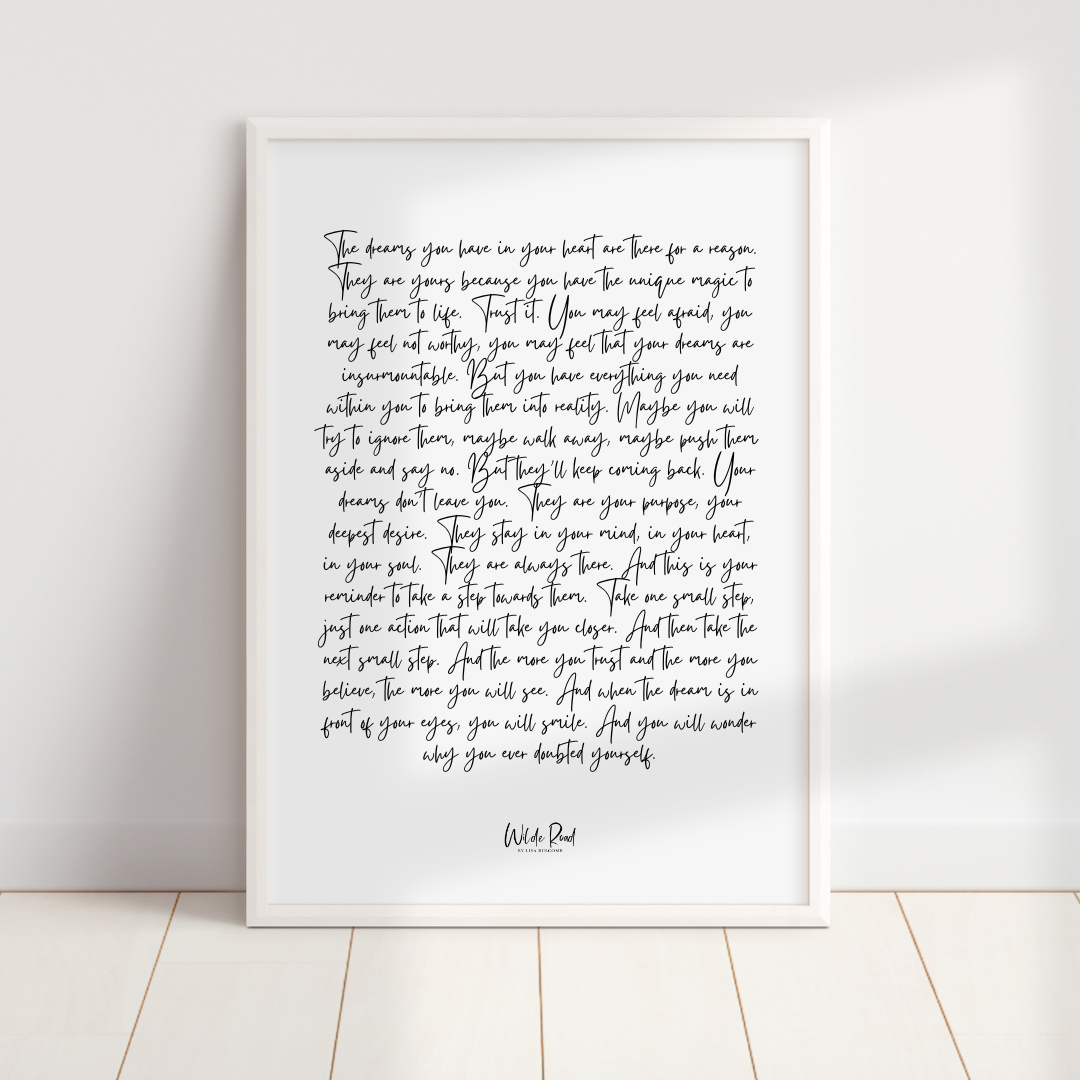 The dreams you have in your heart are there for a reason.
They are yours because you have the unique magic to
bring them to life. Trust it. You may feel afraid, you
may feel not worthy, you may feel that your dreams are
insurmountable. But you have everything you need
within you to bring them into reality. Maybe you will
try to ignore them, maybe walk away, maybe push them
aside and say no. But they'll keep coming back. Your
dreams don't leave you. They are your purpose, your
deepest desire. They stay in your mind, in your heart,
in your soul. They are always there. And this is your
reminder to take a step towards them. Take one small step,
just one action that will take you closer. And then take the
next small step. And the more you trust and the more you
believe, the more you will see. And when the dream is in
front of your eyes, you will smile. And you will wonder
why you ever doubted yourself.
Wilde Road
BY LISA BUSCOMB